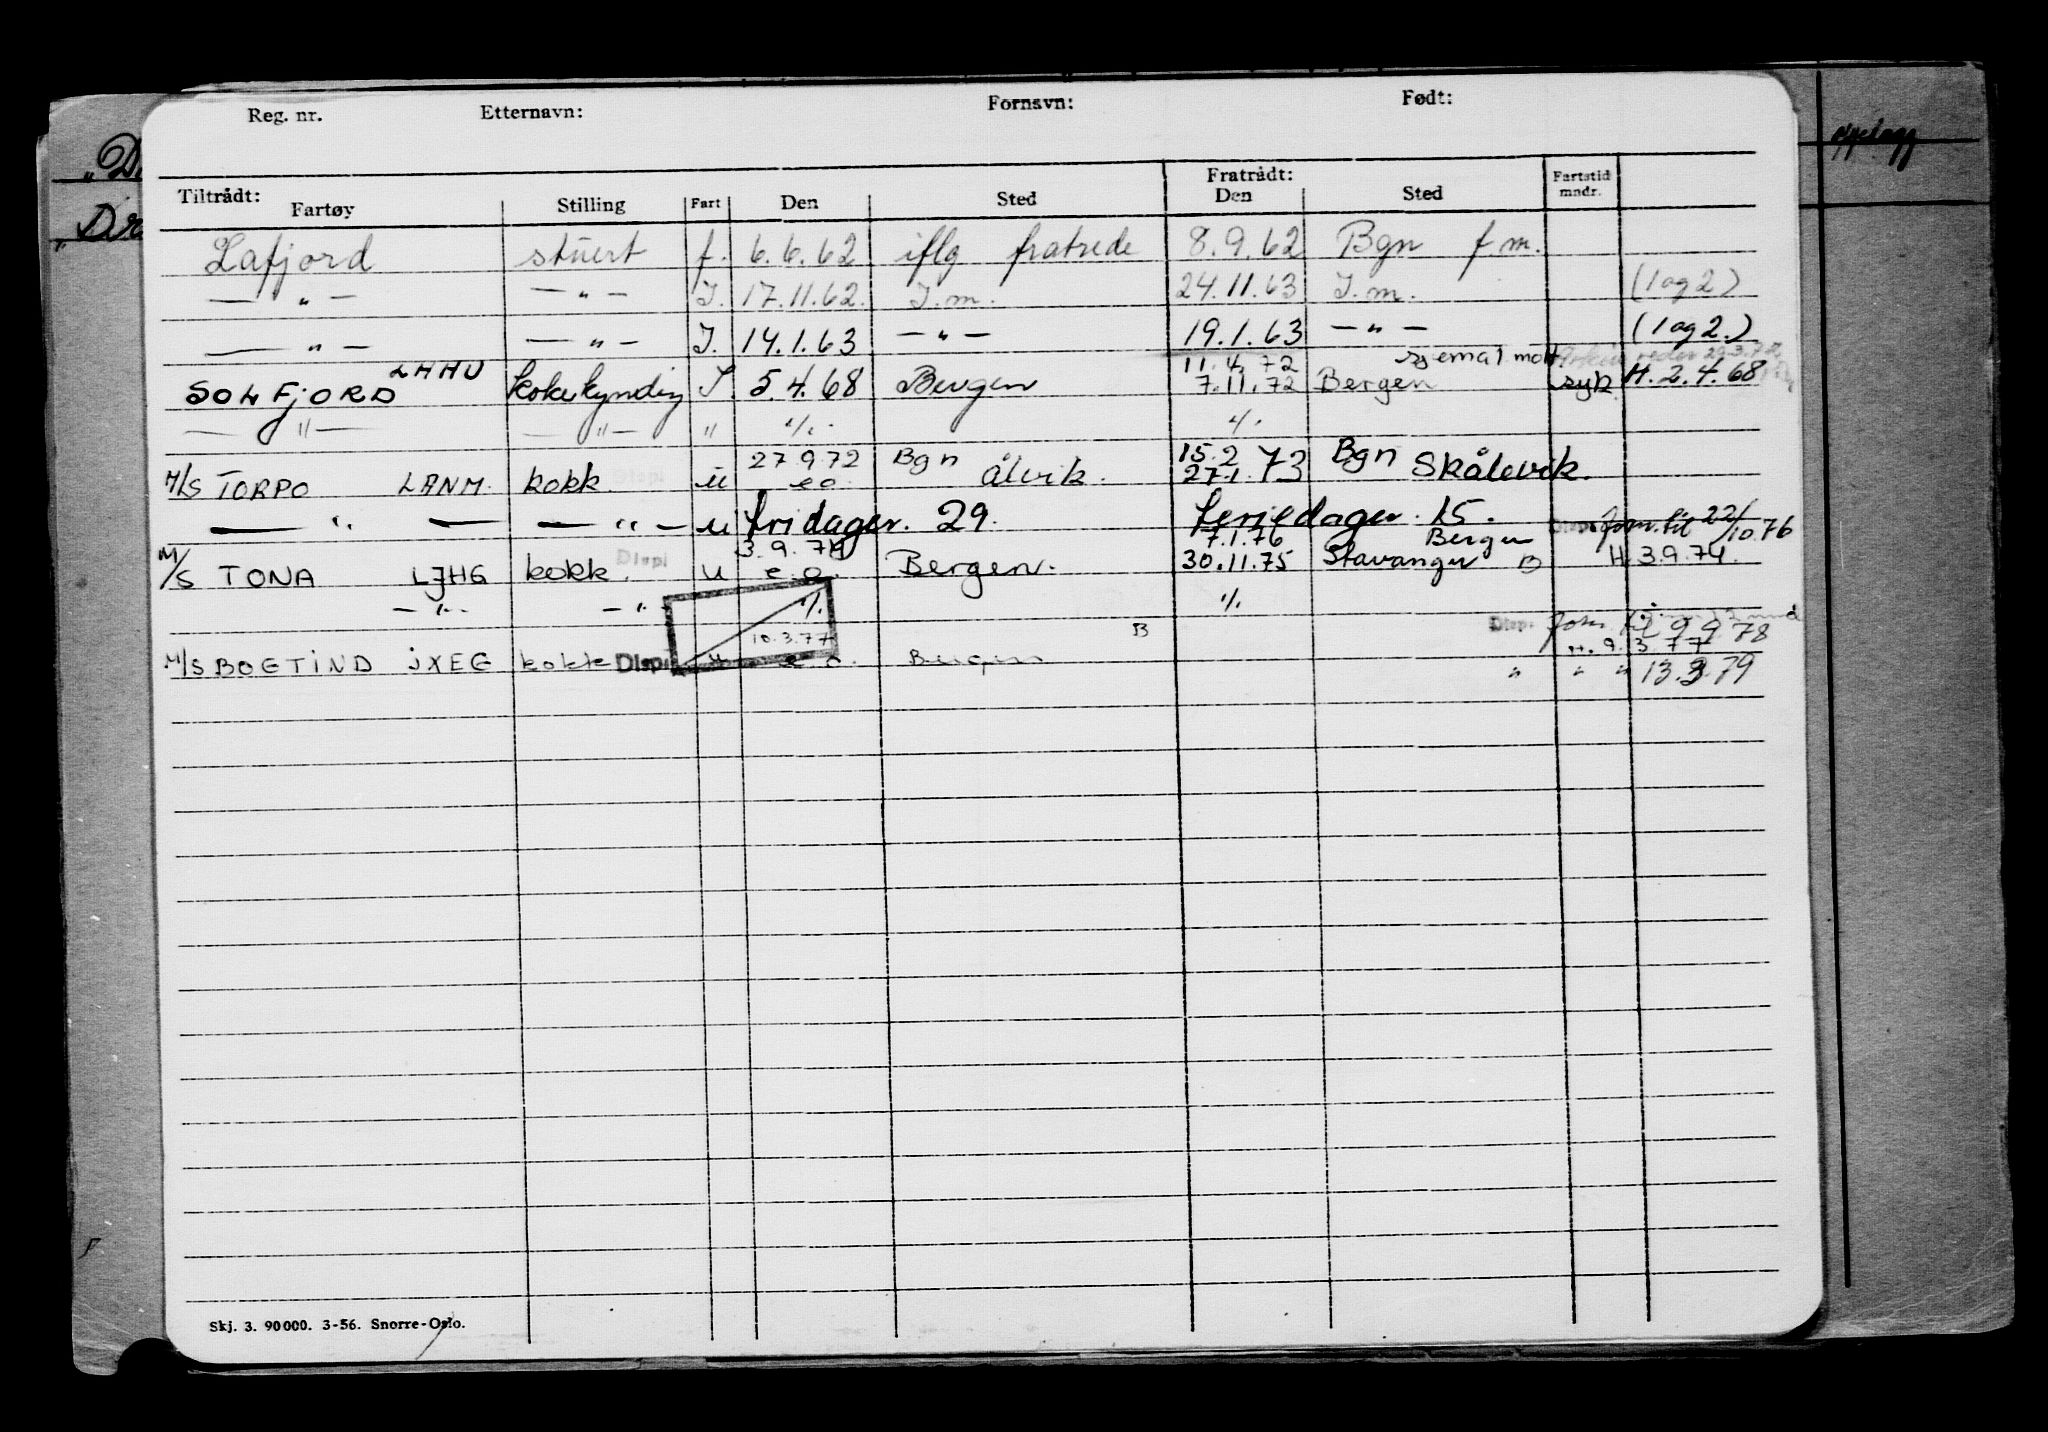 Reg. nr. Etternavn: Fornavn: Født:
Tiltrådt: Fratrådt: Fartstid
Fartøy Stilling Fart Den Sted Den Sted mndr.
Lafjord stuert f. 6.6.62 iflg fratrede 8.9.62 Bgn f.m.
— " — — " — I. 17.11.62. I.m. 24.11.63 I.m. (1 og 2)
— " — — " — I. 14.1.63 — " — 19.1.63 — " — (1 og 2.)
LHHU 11.4.72
SOLFJORD I. 5.4.68 Bergen 7.11.72 Bergen syk H. 2.4.68
— " — — " — " "/. "/.
27.9.72 Bgn 15.2 73 Bgn
M/S TORPO LANM. kokk Displ u eo. Ålvik. 27.1. Skålevik.
— " — — " — u fridager. 29. feriedager. 15. 22/10.76
3.9.74 7.1.76 Bergen
M/S TONA LJHG kokk. Displ u e.o. Bergen. 30.11.75 Stavanger B H. 3.9.74.
— " — — " "/. "/.
10.3.77 B Disp. 9 9 78
H. 9.3.77
M/S BOGTIND JXEG kokk Displ u e o. Bergen
" " " 13.3.79
Skj. 3. 90 000. 3-56. Snorre-Oslo.